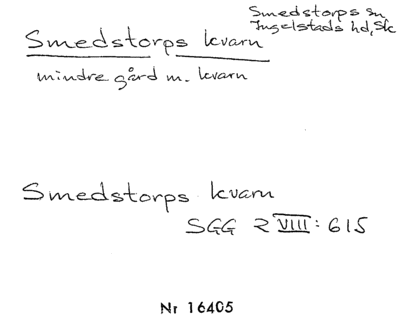 Smedstorps sn,
Ingelstads hd, Sk
Smedstorps kvarn
mindre gård m. kvarn
Smedstorps kvarn
SGG 2 VIII: 615
Nr 16405